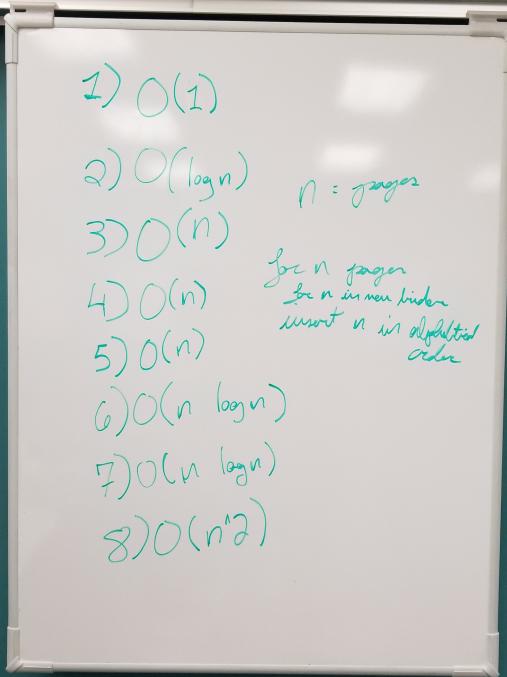 1) O(1)
2) O(log n)
3) O(n)
4) O(n)
5) O(n)
6) O(n log n)
7) O(n log n)
8) O(n^2)
n = pages
for n pages
for n in new binder
insert n in alphabetical
order